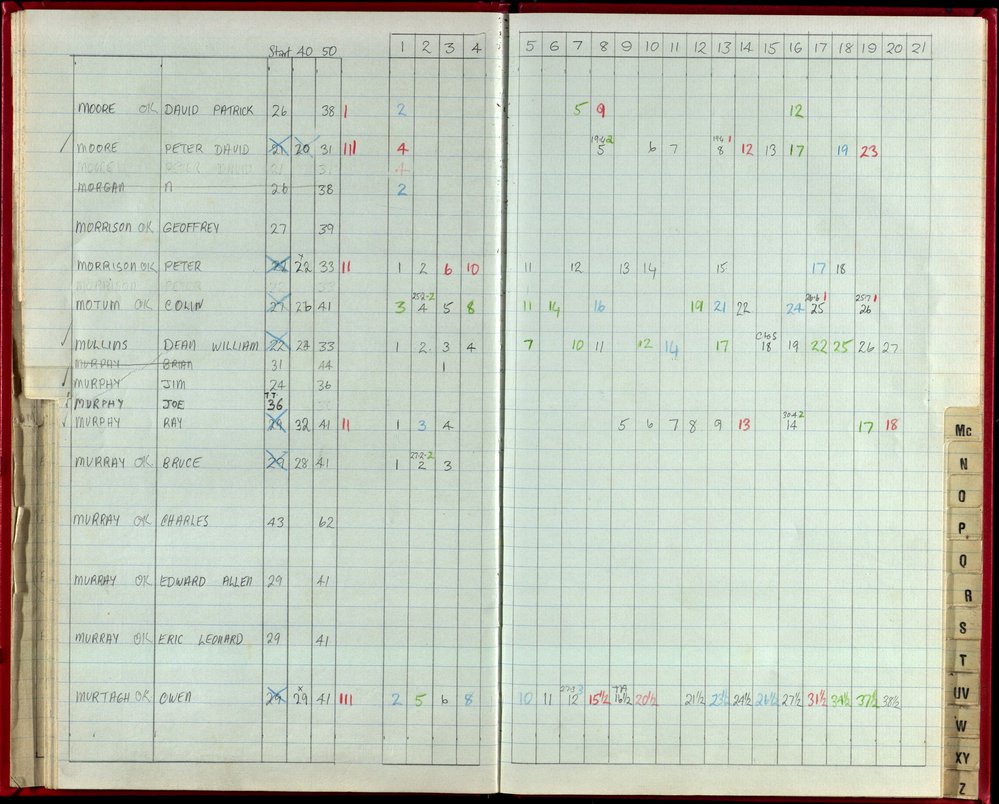 Start 40 50 1 2 3 4 5 6 7 8 9 10 11 12 13 14 15 16 17 18 19 20 21
MOORE OK DAVID PATRICK 26 38 1 2 5 9 12
19-4-2 19-4 1
MOORE PETER DAVID 21 20 31 111 4 5 6 7 8 12 13 17 19 23
MOORE PETER DAVID 21 31 4
MORGAN N 26 38 2
MORRISON OK GEOFFREY 27 39
x
MORRISON OK PETER 22 22 33 11 1 2 6 10 11 12 13 14 15 17 18
MORRISON PETER
25-2-2 26-6 1 25-7 1
MOTUM OK COLIN 27 26 41 3 4 5 8 11 14 16 19 21 22 24 25 26
C to S
MULLINS DEAN WILLIAM 22 23 33 1 2 3 4 7 10 11 12 14 17 18 19 22 25 26 27
MURPHY BRIAN 31 44 1
MURPHY JIM 24 36
TT
MURPHY JOE 36
30-4 2
MURPHY RAY 29 32 41 11 1 3 4 5 6 7 8 9 13 14 17 18
27-2-2
MURRAY OK BRUCE 29 28 41 1 2 3
MURRAY OK CHARLES 43 62
MURRAY OK EDWARD ALLEN 29 41
MURRAY OK ERIC LEONARD 29 41
x 27-3 3 TTA
MURTAGH OK OWEN 29 29 41 111 2 5 6 8 10 11 12 15½ 16½ 20½ 21½ 23½ 24½ 26½ 27½ 31½ 34½ 37½ 38½
Mc
N
O
P
Q
R
S
T
UV
W
XY
Z